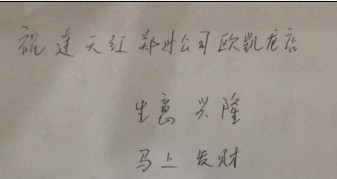 祝莲天红郑州公司欧凯龙店
生意兴隆
马上发财